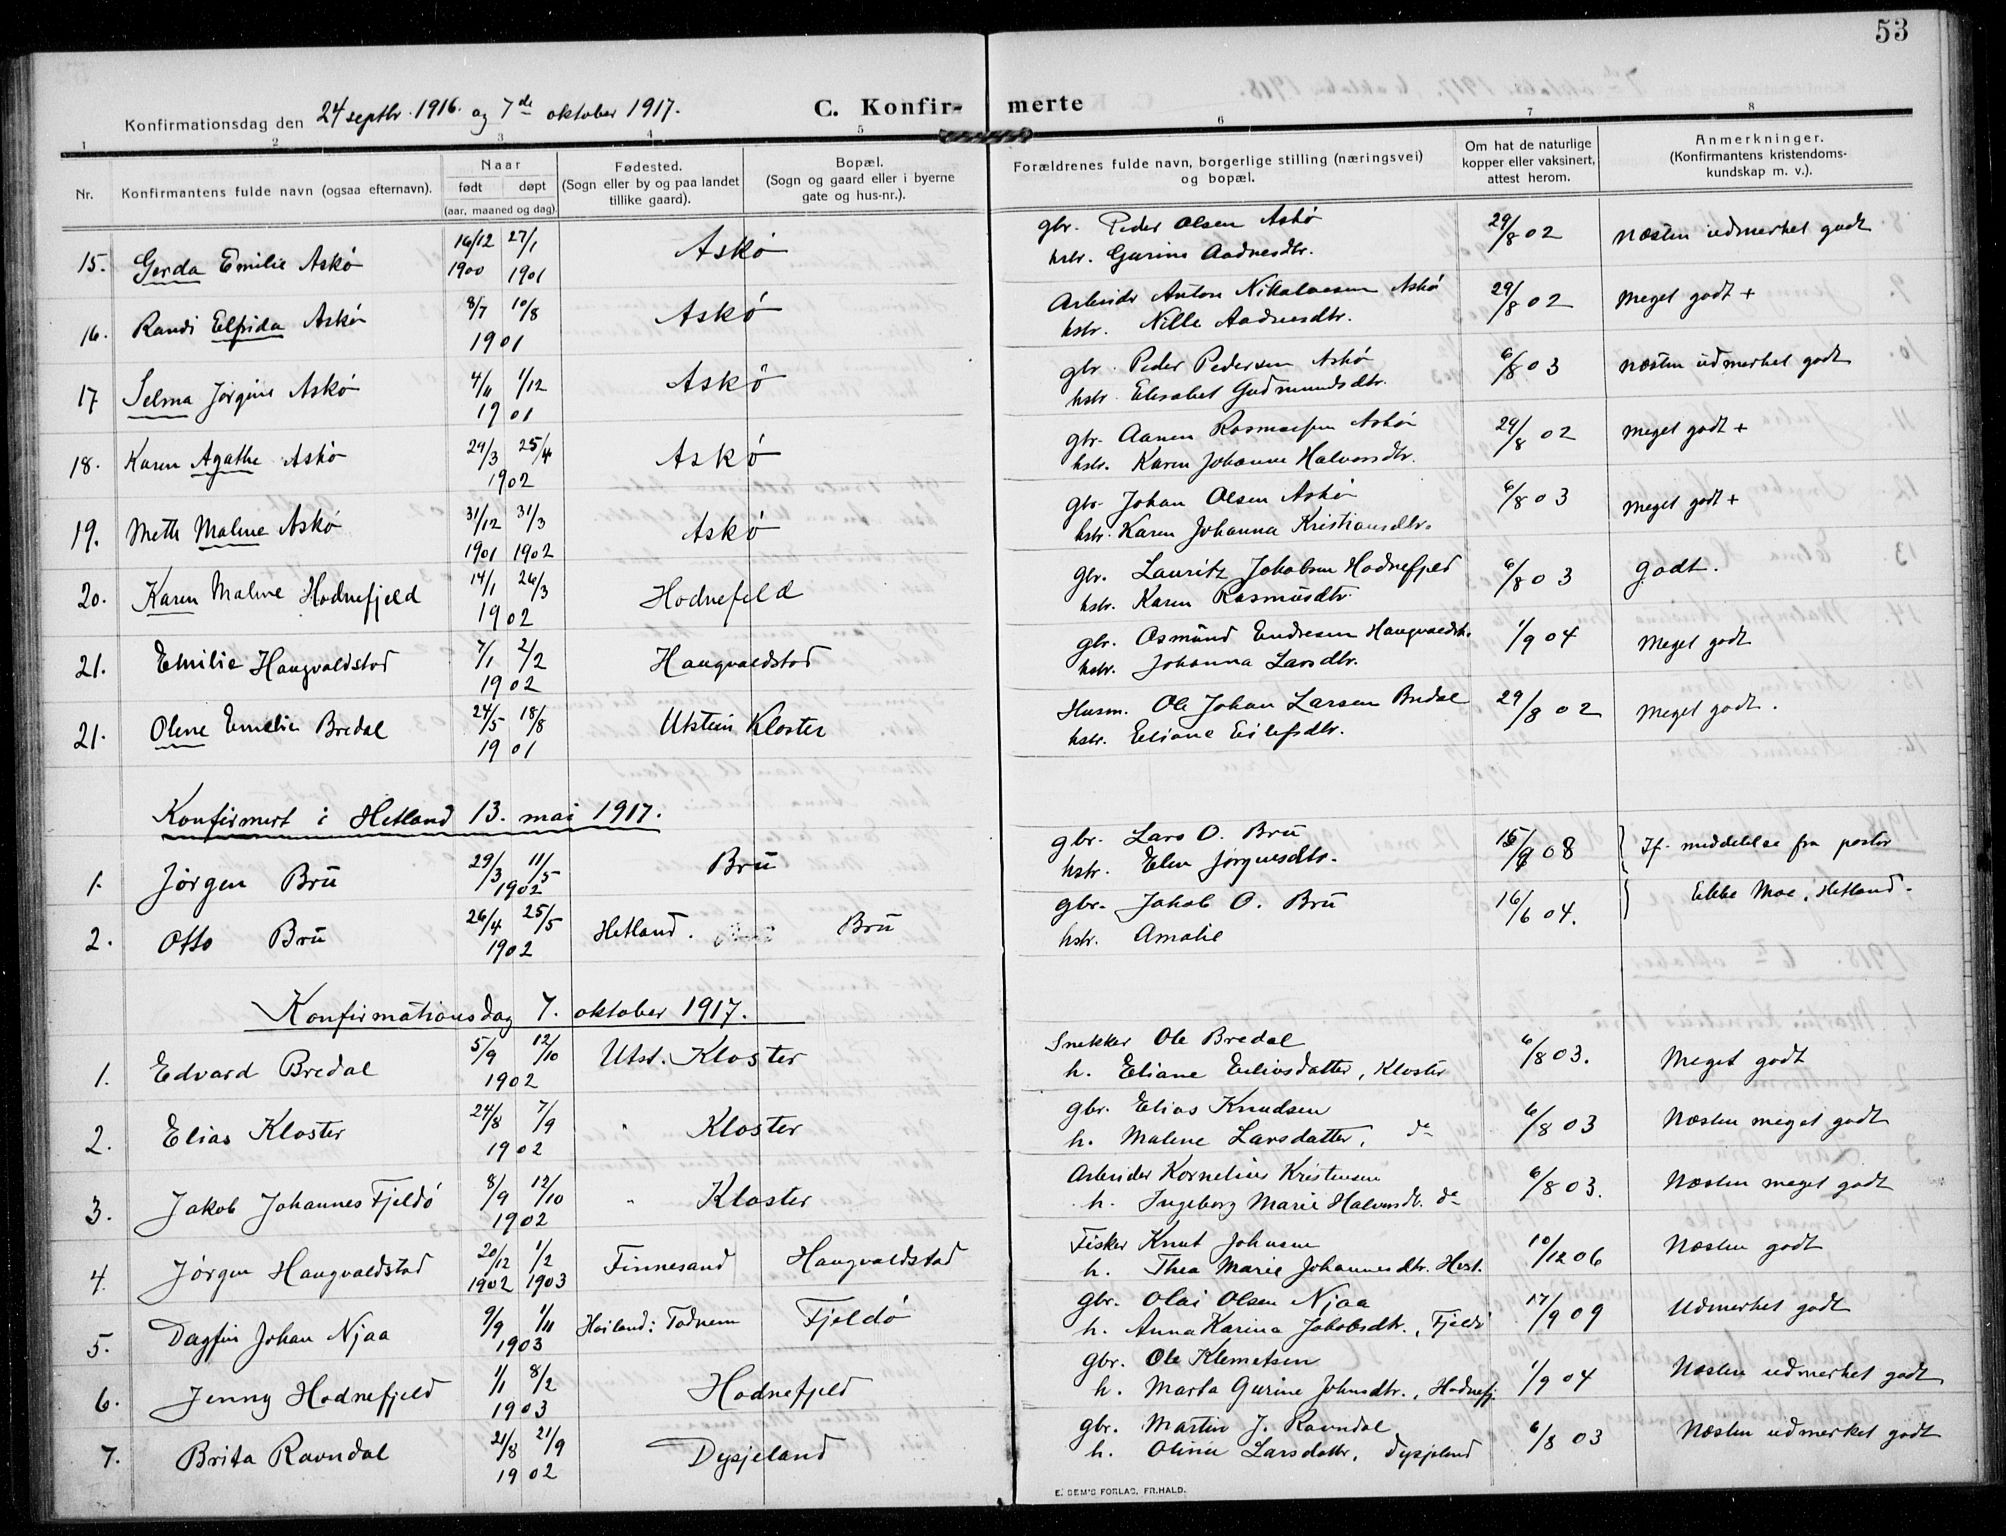 53
Konfirmationsdag den 24 septbr. 1916. og 7de oktober 1917.
C. Konfir- merte
1 2 3 4 5 6 7 8
Nr.
Konfirmantens fulde navn (ogsaa efternavn).
Naar
født døpt
(aar, maaned og dag).
Fødested.
(Sogn eller by og paa landet
tillike gaard).
Bopæl.
(Sogn og gaard eller i byerne
gate og hus-nr.).
Forældrenes fulde navn, borgerlige stilling (næringsvei)
og bopæl.
Om hat de naturlige
kopper eller vaksinert,
attest herom.
Anmerkninger.
(Konfirmantens kristendoms-
kundskap m. v.).
15. Gerda Emilie Askø 16/12 1900 27/1 1901 Askø gbr. Peder Olsen Askø 29/8 02 Næsten udmerket godt
hstr. Gurine Aadnesdtr.
16. Randi Elfrida Askø 8/7 10/8 1901 Askø Arbeider Anton Nikolaesen Askø 29/8 02 Meget godt +
hstr. Nille Aadnesdtr.
17 Selma Jørgine Askø 4/11 1/12 1901 Askø gbr. Peder Pedersen Askø 6/8 03 Næsten udmerket godt
hstr. Elisabet Gudmundsdtr.
18. Karen Agathe Askø 29/3 25/4 1902 Askø gbr. Aanen Rasmussen Askø 29/8 02 Meget godt +
hstr. Karen Johanne Halvorsdtr.
19. Meth Malene Askø 31/12 1901 31/3 1902 Askø gbr. Johan Olsen Askø 6/8 03 Meget godt +
hstr. Karen Johanna Kristiansdtr.
20. Karen Malene Hodnefjeld 14/1 26/3 1902 Hodnefjeld gbr. Lauritz Jakobsen Hodnefjeld 6/8 03 Godt.
hstr. Karen Rasmusdtr.
21. Emilie Haugvaldstad 7/1 2/2 1902 Haugvaldstad gbr. Osmund Endresen Haugvaldst. 1/9 04 Meget godt
hstr. Johanna Larsdtr.
21. Olene Emelie Bredal 24/5 18/8 1901 Utstein Kloster Husm. Ole Johan Larsen Bredal 29/8 02 Meget godt.
hstr. Eliane Eilefsdtr.
Konfirmert i Hetland 13. mai 1917.
1. Jørgen Bru 29/3 11/5 1902 Bru gbr. Lars O. Bru 08 If. meddelelse fra pastor
hstr. Elen Jørginesdtr.
2. Otto Bru 26/4 25/5 1902 Hetland. Bru gbr. Jakob O. Bru 16/6 04. Ebbe Moe, Hetland.
hstr. Amalie
Konfirmationsdag 7. oktober 1917.
1. Edvard Bredal 5/9 12/10 1902 Utst. Kloster Snekker Ole Bredal 6/8 03. Meget godt
h. Eliane Eilivsdatter, Kloster
2. Elias Kloster 24/8 7/9 1902 " Kloster gbr. Elias Knudsen 6/8 03 Næsten meget godt
h. Malene Larsdatter, do
3. Jakob Johannes Fjeldø 8/9 12/10 1902 " Kloster Arbeider Kornelius Kristensen 6/8 03. Næsten meget godt
h. Ingeborg Marie Halvorsdt. do
4. Jørgen Haugvaldstad 20/12 1902 1/2 1903 Finnesand Haugvaldstad Fisker Knut Johnsen 10/12 06 Næsten godt
h. Thea Marie Johannesdtr. Hest.
5. Dagfin Johan Njaa 9/9 1/11 1903 Høiland: Todnem Fjeldø gbr. Olai Olsen Njaa 17/9 09 Udmerket godt
h. Anna Karina Jakobsdtr., Fjeldø
6. Jenny Hodnefjeld 1/1 8/2 1903 Hodnefjeld gbr. Ole Klemetsen 1/9 04 Næsten udmerket godt
h. Marta Gurine Johnsdtr., Hodnefj.
7. Brita Ravndal 21/8 21/9 1902 Dysjeland gbr. Martin J. Ravndal 6/8 03 Næsten udmerket godt
h. Oline Larsdattr, Dysjeland
E. SEM'S FORLAG, FR.HALD.